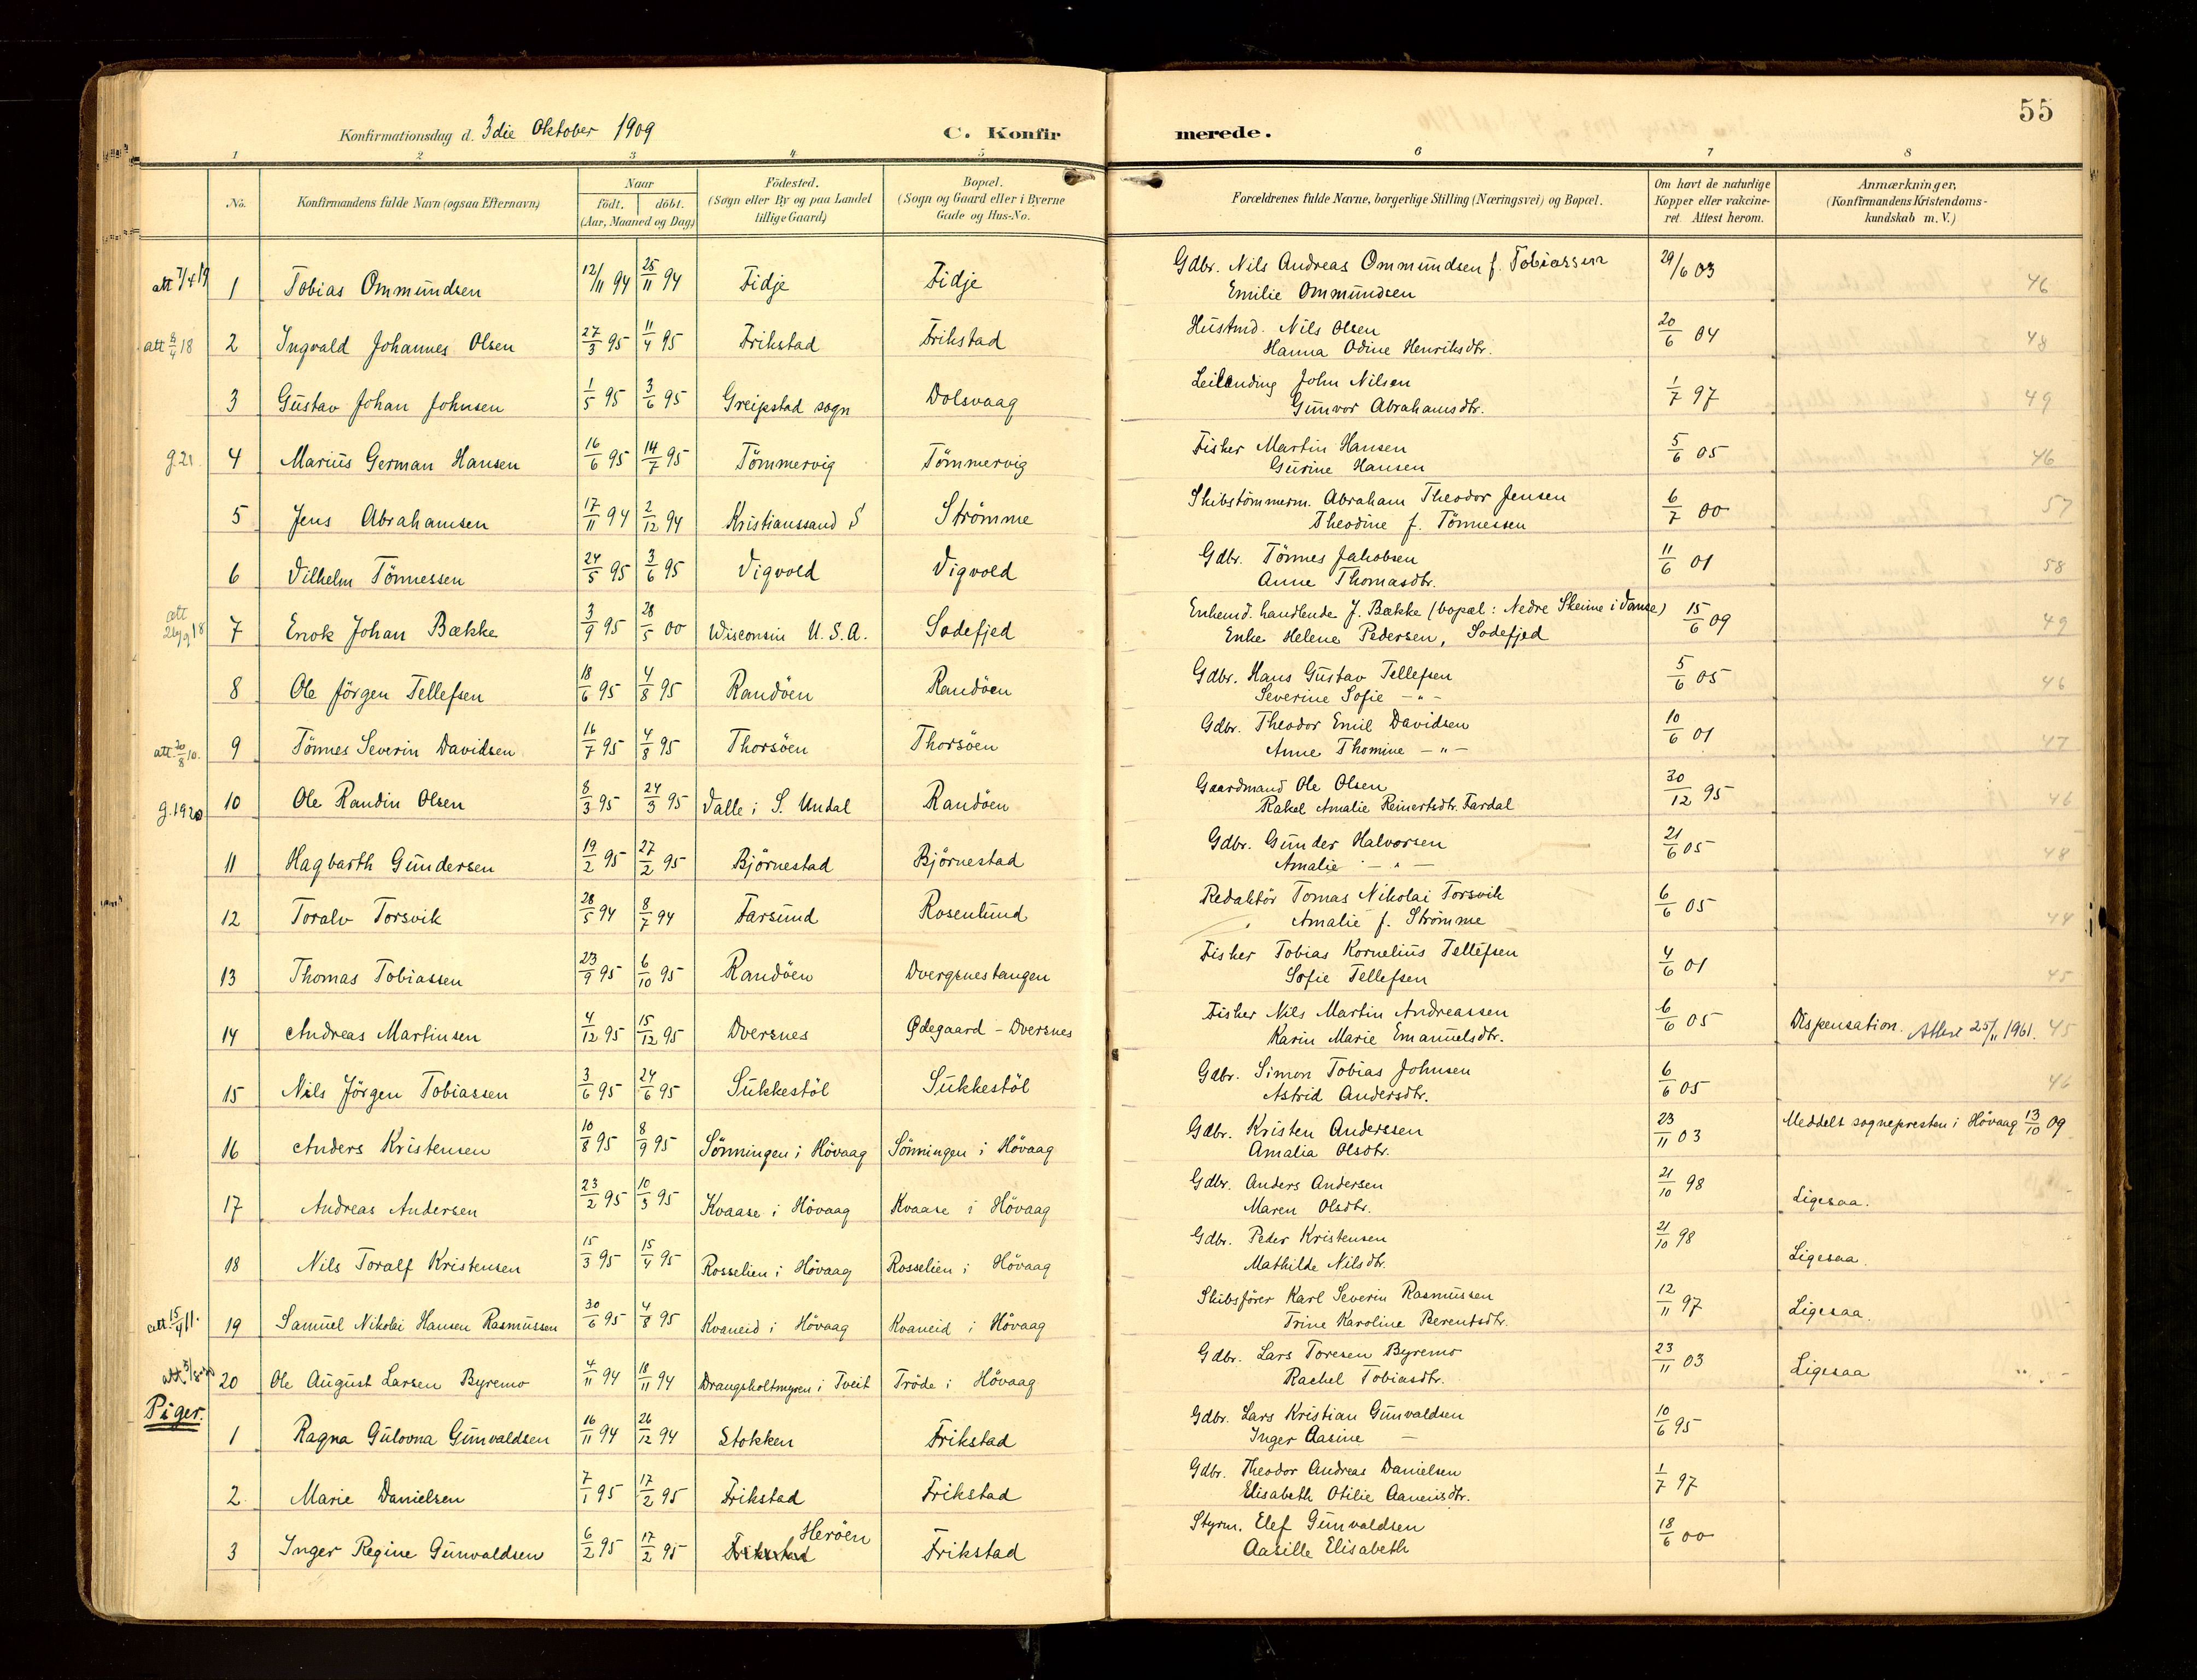 55
Konfirmationsdag d. 3die Oktober 1909 C. Konfirmerede.
1 2 3 4 5 6 7 8
No. Konfirmandens fulde Navn (ogsaa Efternavn) Naar födt. döbt. (Aar, Maaned og Dag) Födested. (Sogn eller By og paa Landet tillige Gaard) Bopæl. (Sogn og Gaard eller i Byerne Gade og Hus-No. Forældrenes fulde Navne, borgerlige Stilling (Næringsvei) og Bopæl. Om havt de naturlige Kopper eller vakcineret. Attest herom. Anmærkninger, (Konfirmandens Kristendomskundskab m. V.)
att 7/4 19 1 Tobias Ommundsen 12/11 94 25/11 94 Fidje Fidje Gdbr. Nils Andreas Ommundsen f. Tobiassen 29/6 03 46
Emilie Ommundsen
att 8/4 18 2 Ingvald Johannes Olsen 27/3 95 11/4 95 Frikstad Frikstad Hustmd. Nils Olsen 20/6 04 48
Hanna Odine Henriksdtr.
3 Gustav Johan Johnsen 1/5 95 3/6 95 Greipstad sogn Dolsvaag Leilending John Nilsen 1/7 97 49
Gunvor Abrahamsdtr.
g. 21. 4 Marius German Hansen 16/6 95 14/7 95 Tömmervig Tömmervig Fisker Martin Hansen 5/6 05 46
Gurine Hansen
5 Jens Abrahamsen 17/11 94 2/12 94 Kristianssand S Strömme Skibstömmerm. Abraham Theodor Jensen 6/7 00 57
Theodine f. Tönnessen
6 Vilhelm Tönnessen 24/5 95 3/6 95 Vigvold Vigvold Gdbr. Tönnes Jakobsen 11/6 01 58
Anne Thomasdtr.
att 7 Enok Johan Bække 3/9 95 28/5 00 Wisconsin U.S.A. Sodefjed Enkemd. handlende J. Bække (bopæl: Nedre Skeime i Vanse) 15/6 09 49
Enke Helene Pedersen, Sodefjed
8 Ole Jörgen Tellefsen 18/6 95 4/8 95 Randöen Randöen Gdbr. Hans Gustav Tellefsen 5/6 05 46
Severine Sofie — " —
att 20/8 10. 9 Tönnes Severin Davidsen 16/7 95 4/8 95 Thorsöen Thorsöen Gdbr. Theodor Emil Davidsen 10/6 01 47
Anne Thomine — " —
g. 1920 10 Ole Randin Olsen 8/3 95 24/3 95 Valle i S. Undal Randöen Gaardmand Ole Olsen 30/12 95 46
Rakel Amalie Reinertsdtr. Fardal
11 Hagbarth Gundersen 19/2 95 27/2 95 Björnestad Björnestad Gdbr. Gunder Halvorsen 21/6 05 48
Amalie — " —
12 Toralv Torsvik 28/5 94 8/7 94 Farsund Rosenlund Redaktör Tomas Nikolai Torsvik 6/6 05 44
Amalie f. Strömme
13 Thomas Tobiassen 23/9 95 6/10 95 Randöen Dvergsnestangen Fisker Tobias Kornelius Tellefsen 4/6 01 45
Sofie Tellefsen
14 Andreas Martinsen 4/12 95 15/12 95 Dversnes Ødegaard - Dversnes Fisker Nils Martin Andreassen 6/6 05 Dispensation. Attest 25/11 1961. 45
Karin Marie Emanuelsdtr.
15 Nils Jörgen Tobiassen 3/6 95 24/6 95 Sukkestöl Sukkestöl Gdbr. Simon Tobias Johnsen 6/6 05 46
Astrid Andersdtr.
16 Anders Kristensen 10/8 95 8/9 95 Sönningen i Hövaag Sönningen i Hövaag Gdbr. Kristen Anderssen 23/11 03 Meddelt sognepresten i Hövaag 13/10 09
Amalia Olsdtr.
17 Andreas Andersen 23/2 95 10/3 95 Kvaase i Hövaag Kvaase i Hövaag Gdbr. Anders Andersen 21/10 98 Ligesaa.
Maren Olsdtr.
18 Nils Toralf Kristensen 15/3 95 15/4 95 Rosselien i Hövaag Rosselien i Hövaag Gdbr. Peder Kristensen 21/10 98 Ligesaa.
Mathilde Nilsdtr.
att. 15/4 11. 19 Samuel Nikolai Hansen Rasmussen 30/6 95 4/8 95 Kvaneid i Hövaag Kvaneid i Hövaag Skibsförer Karl Severin Rasmussen 12/11 97 Ligesaa.
Trine Karoline Berentsdtr.
att. 20 Ole August Larsen Byremo 4/11 94 18/11 94 Drangsholtmyren i Tveit Tröde i Hövaag Gdbr. Lars Toresen Byremo 23/11 03 Ligesaa
Rachel Tobiasdtr.
Piger.
1 Ragna Gulovna Gunvaldsen 16/11 94 26/12 94 Stokken Frikstad Gdbr. Lars Kristian Gunvaldsen 10/6 95
Inger Aasine —
2 Marie Danielsen 7/1 95 17/2 95 Frikstad Frikstad Gdbr. Theodor Andreas Danielsen 1/7 97
Elisabeth Otilie Aanensdtr.
3 Inger Regine Gunvaldsen 6/2 95 17/2 95 Frikstad Heröen Frikstad Styrm. Elef Gunvaldsen 18/6 00
Aasille Elisabeth